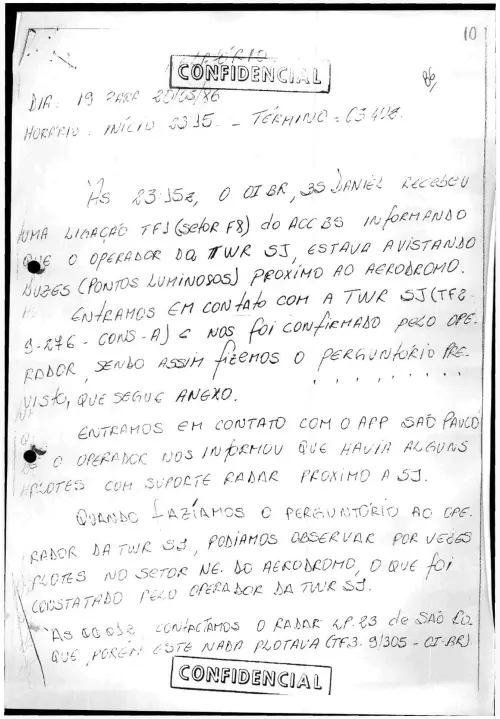 10
RELATÓRIO
CONFIDENCIAL
DIA: 19 PARA 20/05/86
HORÁRIO: INÍCIO 2315. - TÉRMINO =
ÀS 23:15Z, O OI BR, 3S DANIEL RECEBEU
UMA LIGAÇÃO TF1 (setor F8) do ACC BS INFORMANDO
QUE O OPERADOR DA TWR SJ, ESTAVA AVISTANDO
LUZES (PONTOS LUMINOSOS) PROXIMO AO AERODROMO.
ENTRAMOS EM CONTATO COM A TWR SJ (TF2-
9-276 - CONS-A) E NOS foi CONFIRMADO PELO OPE-
RADOR, SENDO ASSIM fizemos O PERGUNTÓRIO PRE-
VISTO, QUE SEGUE ANEXO.
ENTRAMOS EM CONTATO COM O APP SÃO PAULO
E O OPERADOR NOS INFORMOU QUE HAVIA ALGUNS
PLOTES COM SUPORTE RADAR PROXIMO A SJ.
QUANDO FAZÍAMOS O PERGUNTÓRIO AO OPE-
RADOR DA TWR SJ, PODÍAMOS OBSERVAR POR VEZES
PLOTES NO SETOR NE. DO AERODROMO, O QUE foi
CONSTATADO PELO OPERADOR DA TWR SJ.
ÀS 00:01Z, CONTACTAMOS O RADAR LP.23 de SÃO RO-
QUE, PORÉM ESTE NADA PLOTAVA (TF3. 9/305 - OI-BR)
CONFIDENCIAL